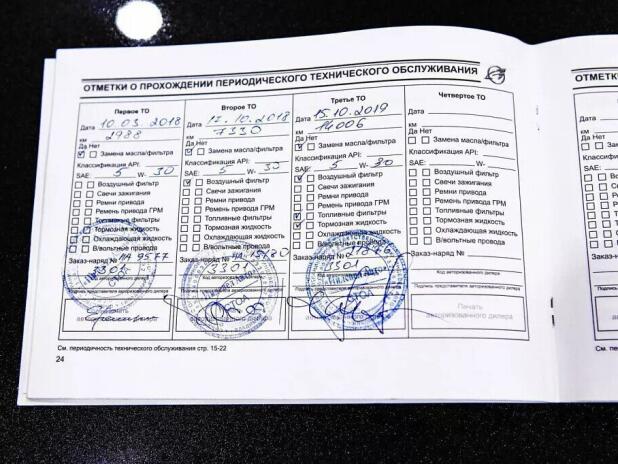 ОТМЕТКИ О ПРОХОЖДЕНИИ ПЕРИОДИЧЕСКОГО ТЕХНИЧЕСКОГО ОБСЛУЖИВАНИЯ
ОТМЕТК
Первое ТО
Дата 10.03.2018
км 2988
Да Нет
Замена масла/фильтра
Классификация API:
SAE: 5 W- 30
Воздушный фильтр
Свечи зажигания
Ремни привода
Ремень привода ГРМ
Топливные фильтры
Тормозная жидкость
Охлаждающая жидкость
В/вольтные провода
Заказ-наряд № НА 9577
3301
Второе ТО
Дата 17.10.2018
км 7330
Да Нет
Замена масла/фильтра
Классификация API:
SAE: 5 W- 30
Воздушный фильтр
Свечи зажигания
Ремни привода
Ремень привода ГРМ
Топливные фильтры
Тормозная жидкость
Охлаждающая жидкость
В/вольтные провода
Заказ-наряд №
3301
СТОА
Третье ТО
Дата 15.10.2019
км 14006
Да Нет
Замена масла/фильтра
Классификация API:
SAE: 5 W- 30
Воздушный фильтр
Свечи зажигания
Ремни привода
Ремень привода ГРМ
Топливные фильтры
Тормозная жидкость
Охлаждающая жидкость
В/вольтные провода
Заказ-наряд №
3301
Код авторизованного дилера
СТОА
Четвертое ТО
Дата
км
Да Нет
Замена масла/фильтра
Классификация API:
SAE: W-
Воздушный фильтр
Свечи зажигания
Ремни привода
Ремень привода ГРМ
Топливные фильтры
Тормозная жидкость
Охлаждающая жидкость
В/вольтные провода
Заказ-наряд №
Код авторизованного дилера
Подпись представителя авторизованного дилера
Печать
авторизованного дилера
См. периодичность технического обслуживания стр. 15-22
24
Дата
км
Да Нет
SAE:
Заказ-н
Подпись пре
авториз
См. пери